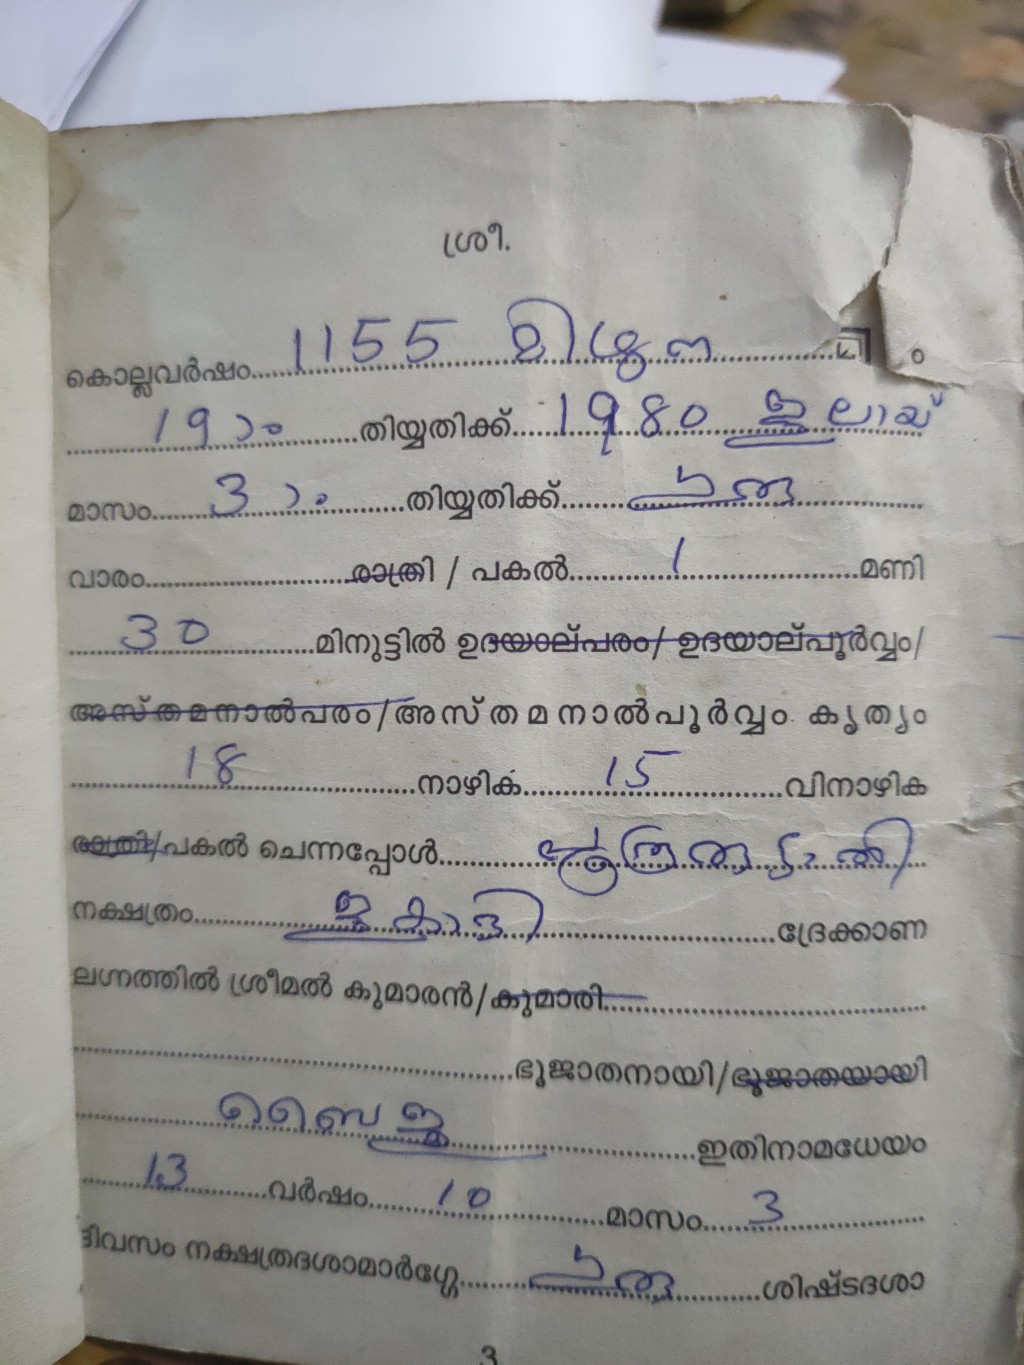 ശ്രീ.
കൊല്ലവർഷം 1155 മിഥുന
19ാം തിയ്യതിക്ക് 1980 ജൂലായ്
മാസം 3ാം തിയ്യതിക്ക്
വാരം രാത്രി / പകൽ 1 മണി
30 മിനുട്ടിൽ ഉദയാല്പരം/ ഉദയാല്പൂർവ്വം/
അസ്തമനാൽപരം/അസ്തമനാൽപൂർവ്വം കൃത്യം
18 നാഴിക 15 വിനാഴിക
രാത്രി/പകൽ ചെന്നപ്പോൾ
നക്ഷത്രം ദ്രേക്കാണ
ലഗ്നത്തിൽ ശ്രീമൽ കുമാരൻ/കുമാരി
ഭൂജാതനായി/ഭൂജാതയായി
ബൈജു ഇതിനാമധേയം
13 വർഷം 10 മാസം 3
ദിവസം നക്ഷത്രദശാമാർഗ്ഗേ ശിഷ്ടദശാ
3